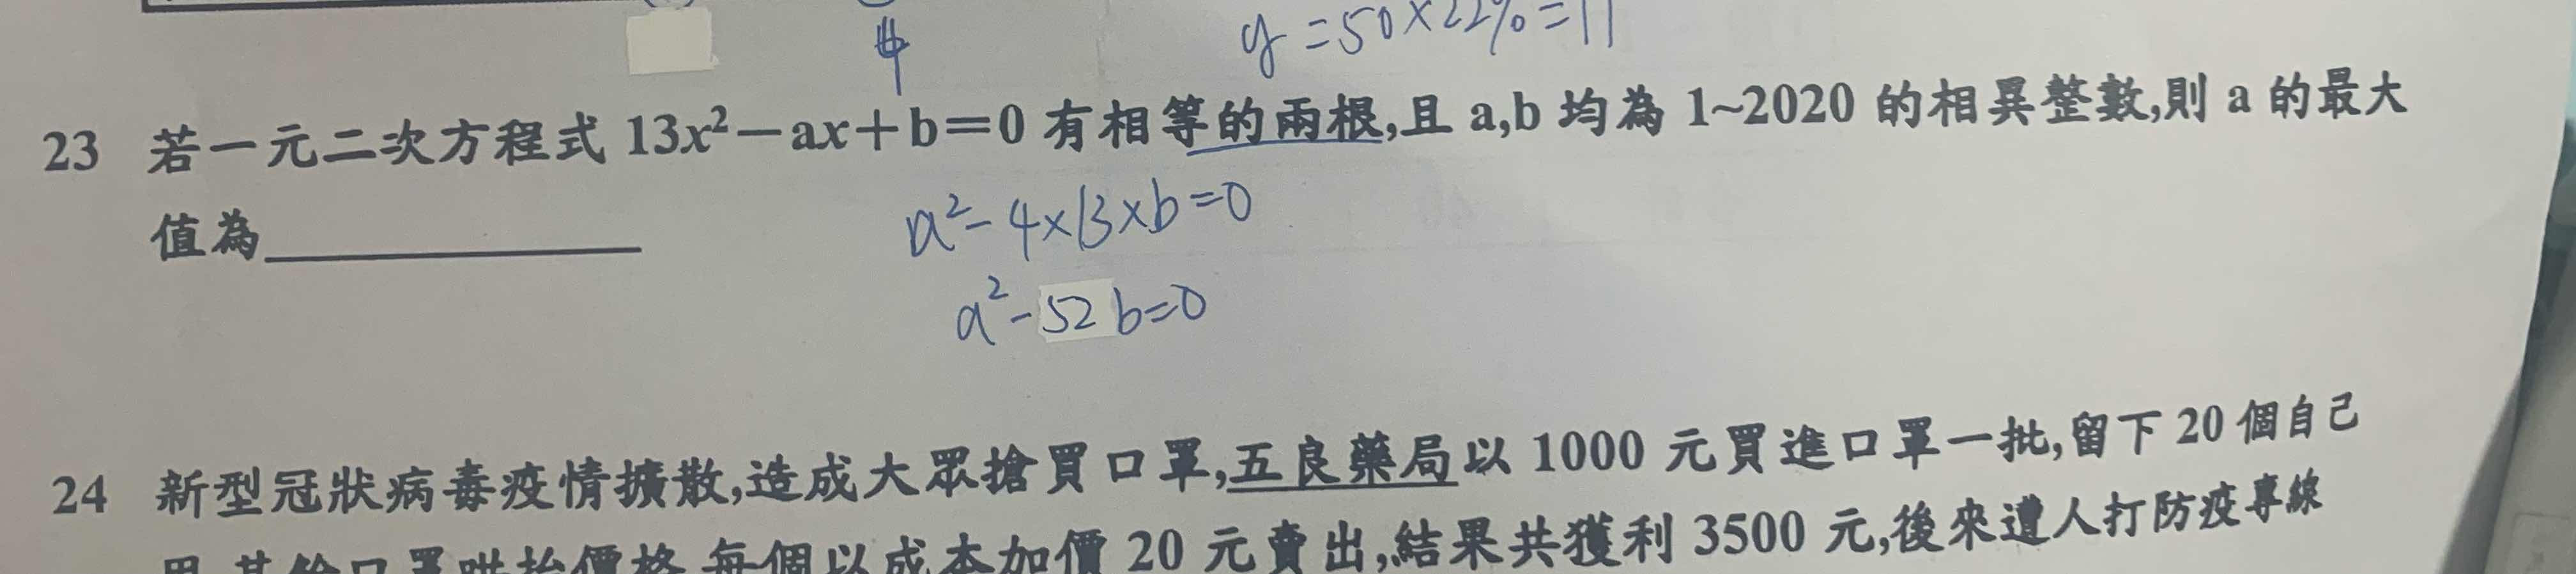 y=50×22%=11
4
23 若一元二次方程式 13x²－ax＋b＝0 有相等的兩根,且 a,b 均為 1~2020 的相異整數,則 a 的最大
值為
a²-4×13×b=0
a²-52b=0
24 新型冠狀病毒疫情擴散,造成大眾搶買口罩,五良藥局以 1000 元買進口罩一批,留下 20 個自己
用,其餘口罩哄抬價格,每個以成本加價 20 元賣出,結果共獲利 3500 元,後來遭人打防疫專線